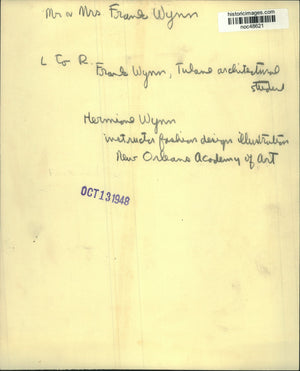 Mr & Mrs Frank Wynn
historicimages.com
noc48621
L to R.
Frank Wynn, Tulane architectural
student
Hermione Wynn
instructor fashion design illustration
New Orleans Academy of Art
OCT 13 1948